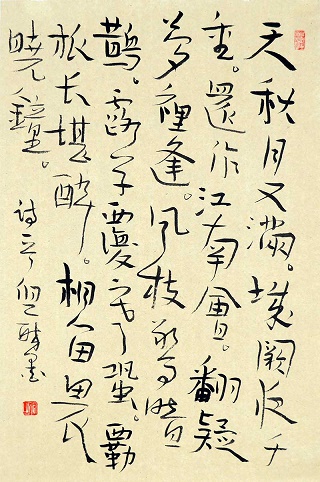 天秋月又滿。城闕夜千
重。還作江南會。翻疑
夢裡逢。風枝驚暗
鵲。露草覆寒蛩。羈
旅長堪醉。相留畏
曉鐘。